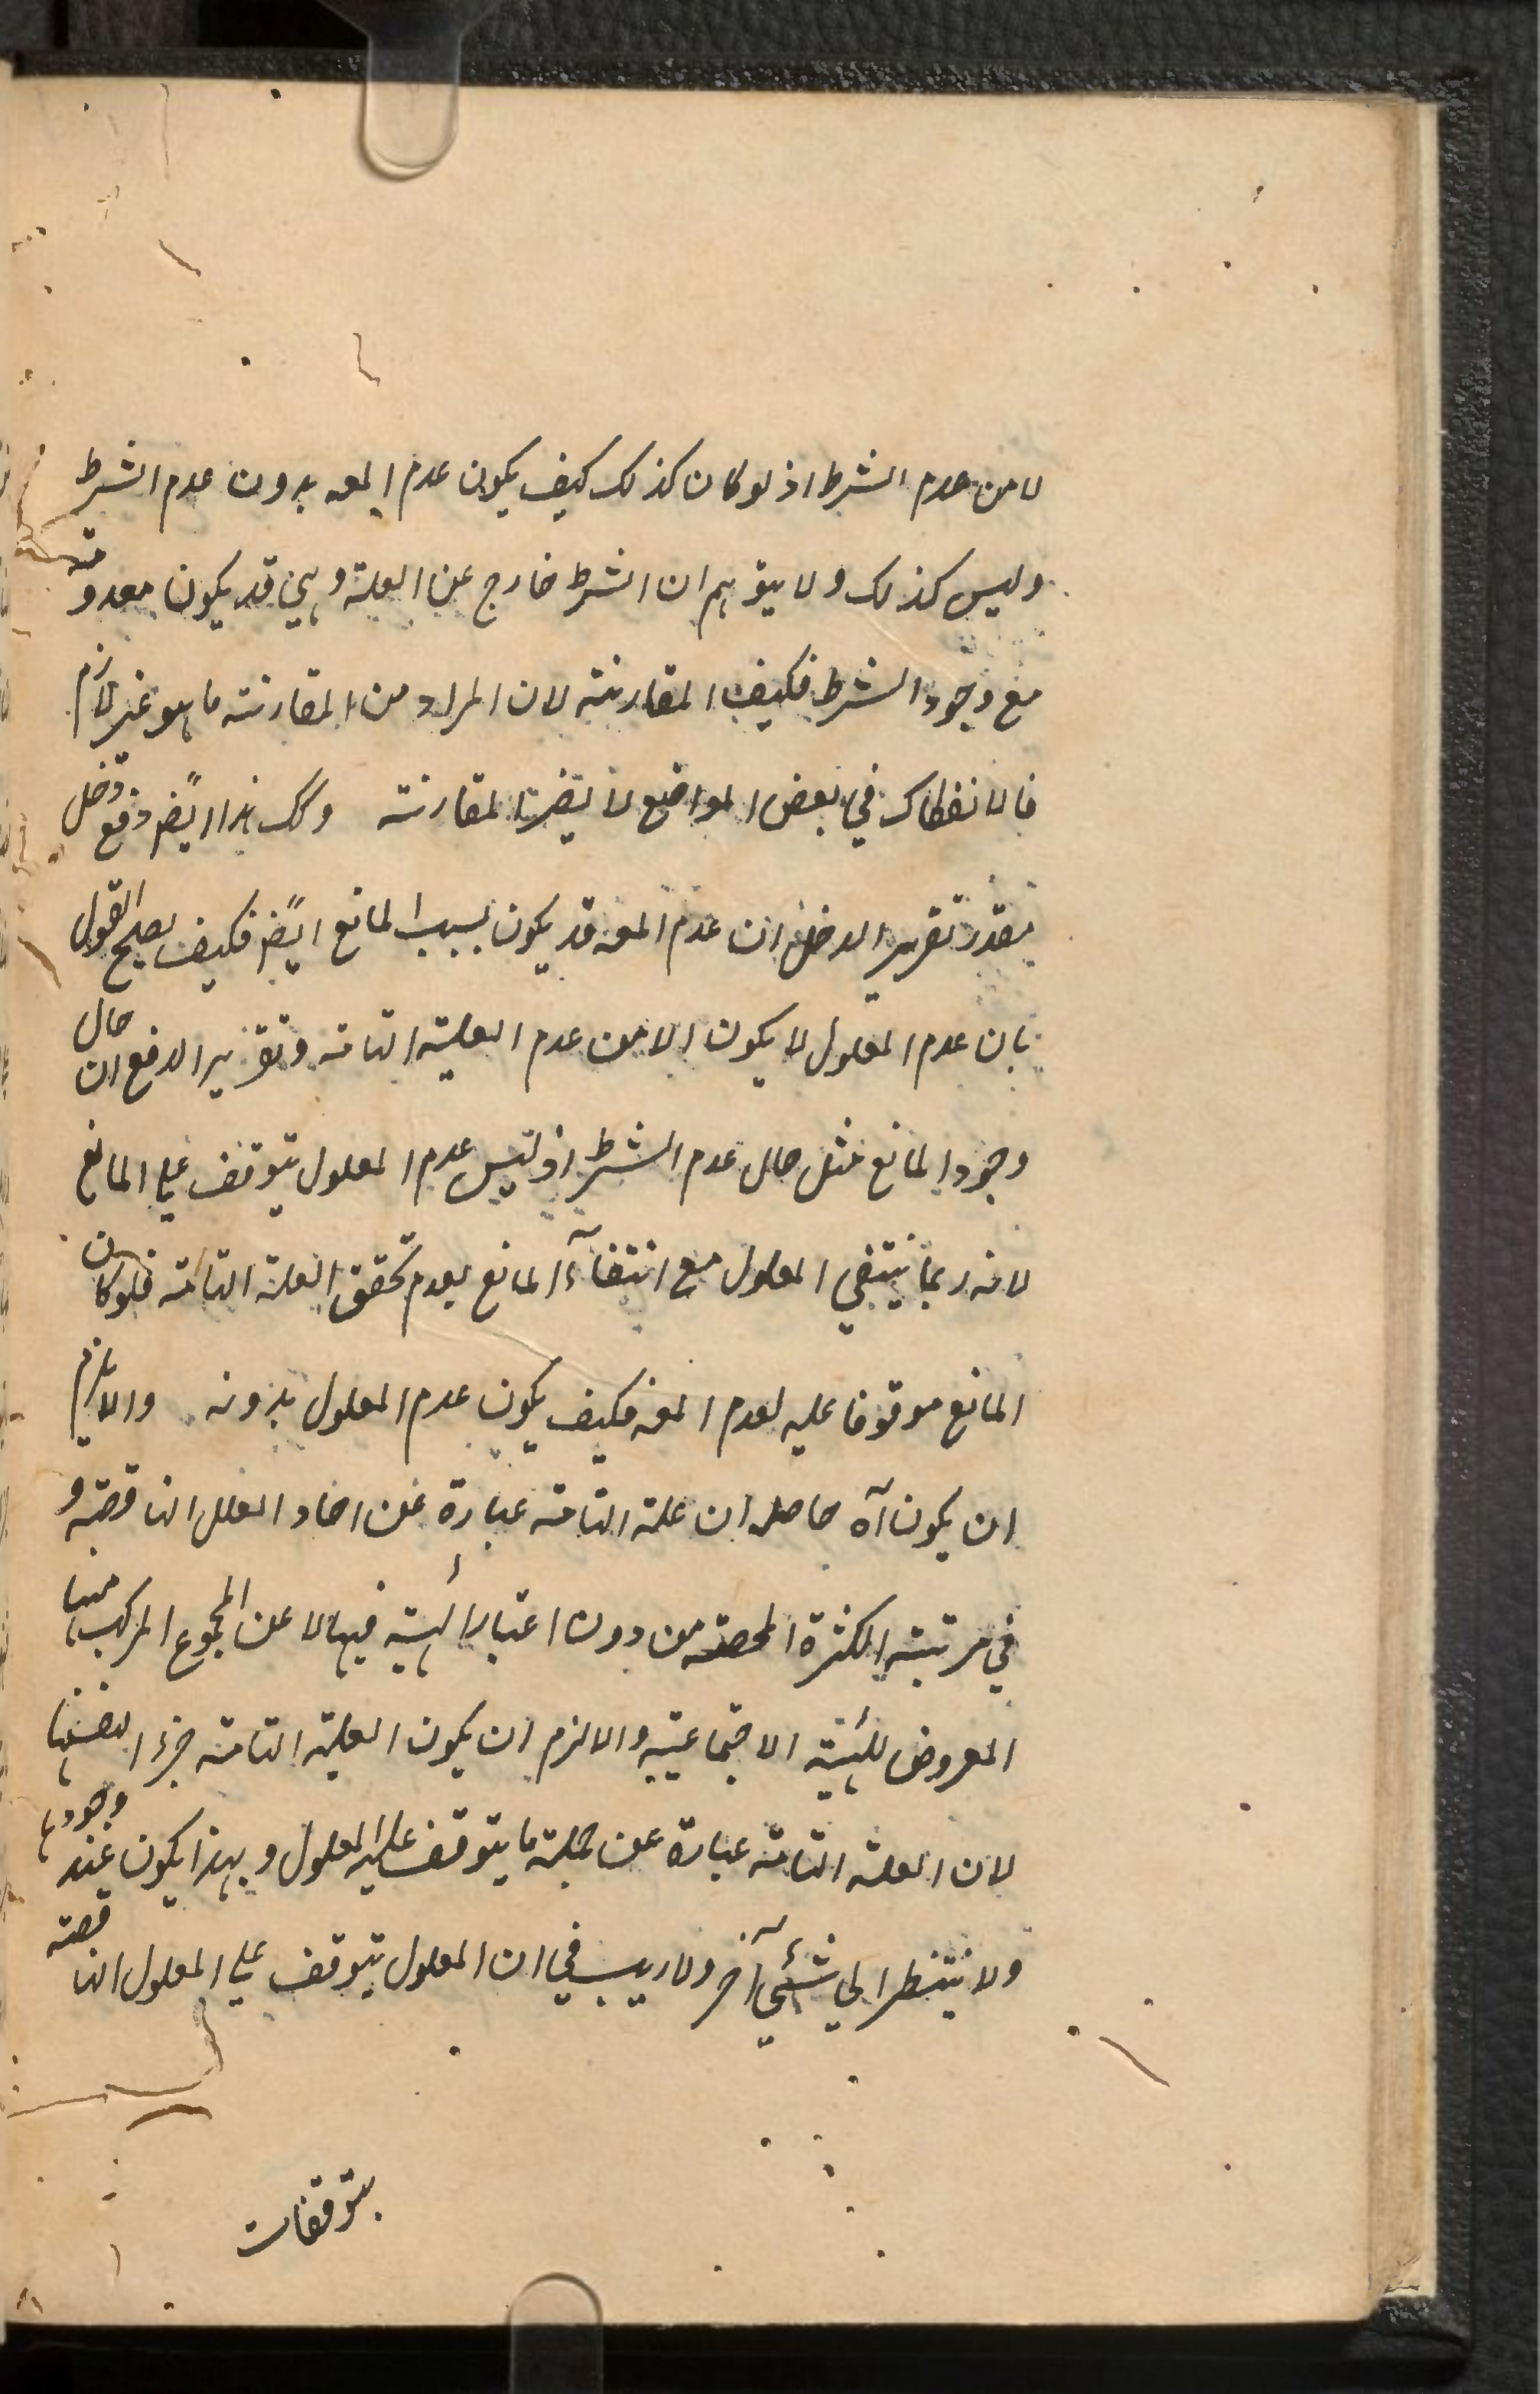 لا من عدم الشرط اذ لو كان كذلك كيف يكون عدم المعه بدون عدم الشرط
وليس كذلك ولا يتوهم ان الشرط خارج عن العلة وهي قد يكون معدومة
مع وجود الشرط فكيف المقارنة لان المراد من المقارنة ما هو غير لازم
فالانفكاك في بعض المواضع لا يضر المقارنة وكك هذا ايضً دفع دخل
مقدر تقرير الدخل ان عدم المعه قد يكون بسبب المانع ايضً فكيف يصلح القول
بان عدم المعلول لا يكون الا من عدم العلية التامة وتقرير الدفع ان حال
وجود المانع مثل حال عدم الشرط اذ ليس عدم المعلول يتوقف على المانع
لانه ربما ينتفي المعلول مع انتفآء المانع بعدم تحقق العلة التامة فلو كان
المانع موقوفا عليه لعدم المعه فكيف يكون عدم المعلول بدونه والا يلزم
ان يكون آه حاصله ان علة التامة عبارة عن احاد العلل الناقصة و
في مرتبة الكثرة المحصة من دون اعتبار الهيئة فيها لا عن المجموع المركب منها
المعروض للهيئة الاجتماعية والا لزم ان يكون العلية التامة جزء النفسها
لان العلة التامة عبارة عن جملة ما يتوقف عليه المعلول وبهذا يكون عند وجودها
ولا ينتظر الى شئي آخر ولا ريب في ان المعلول يتوقف على المعلول الناقصة
بتوقفات